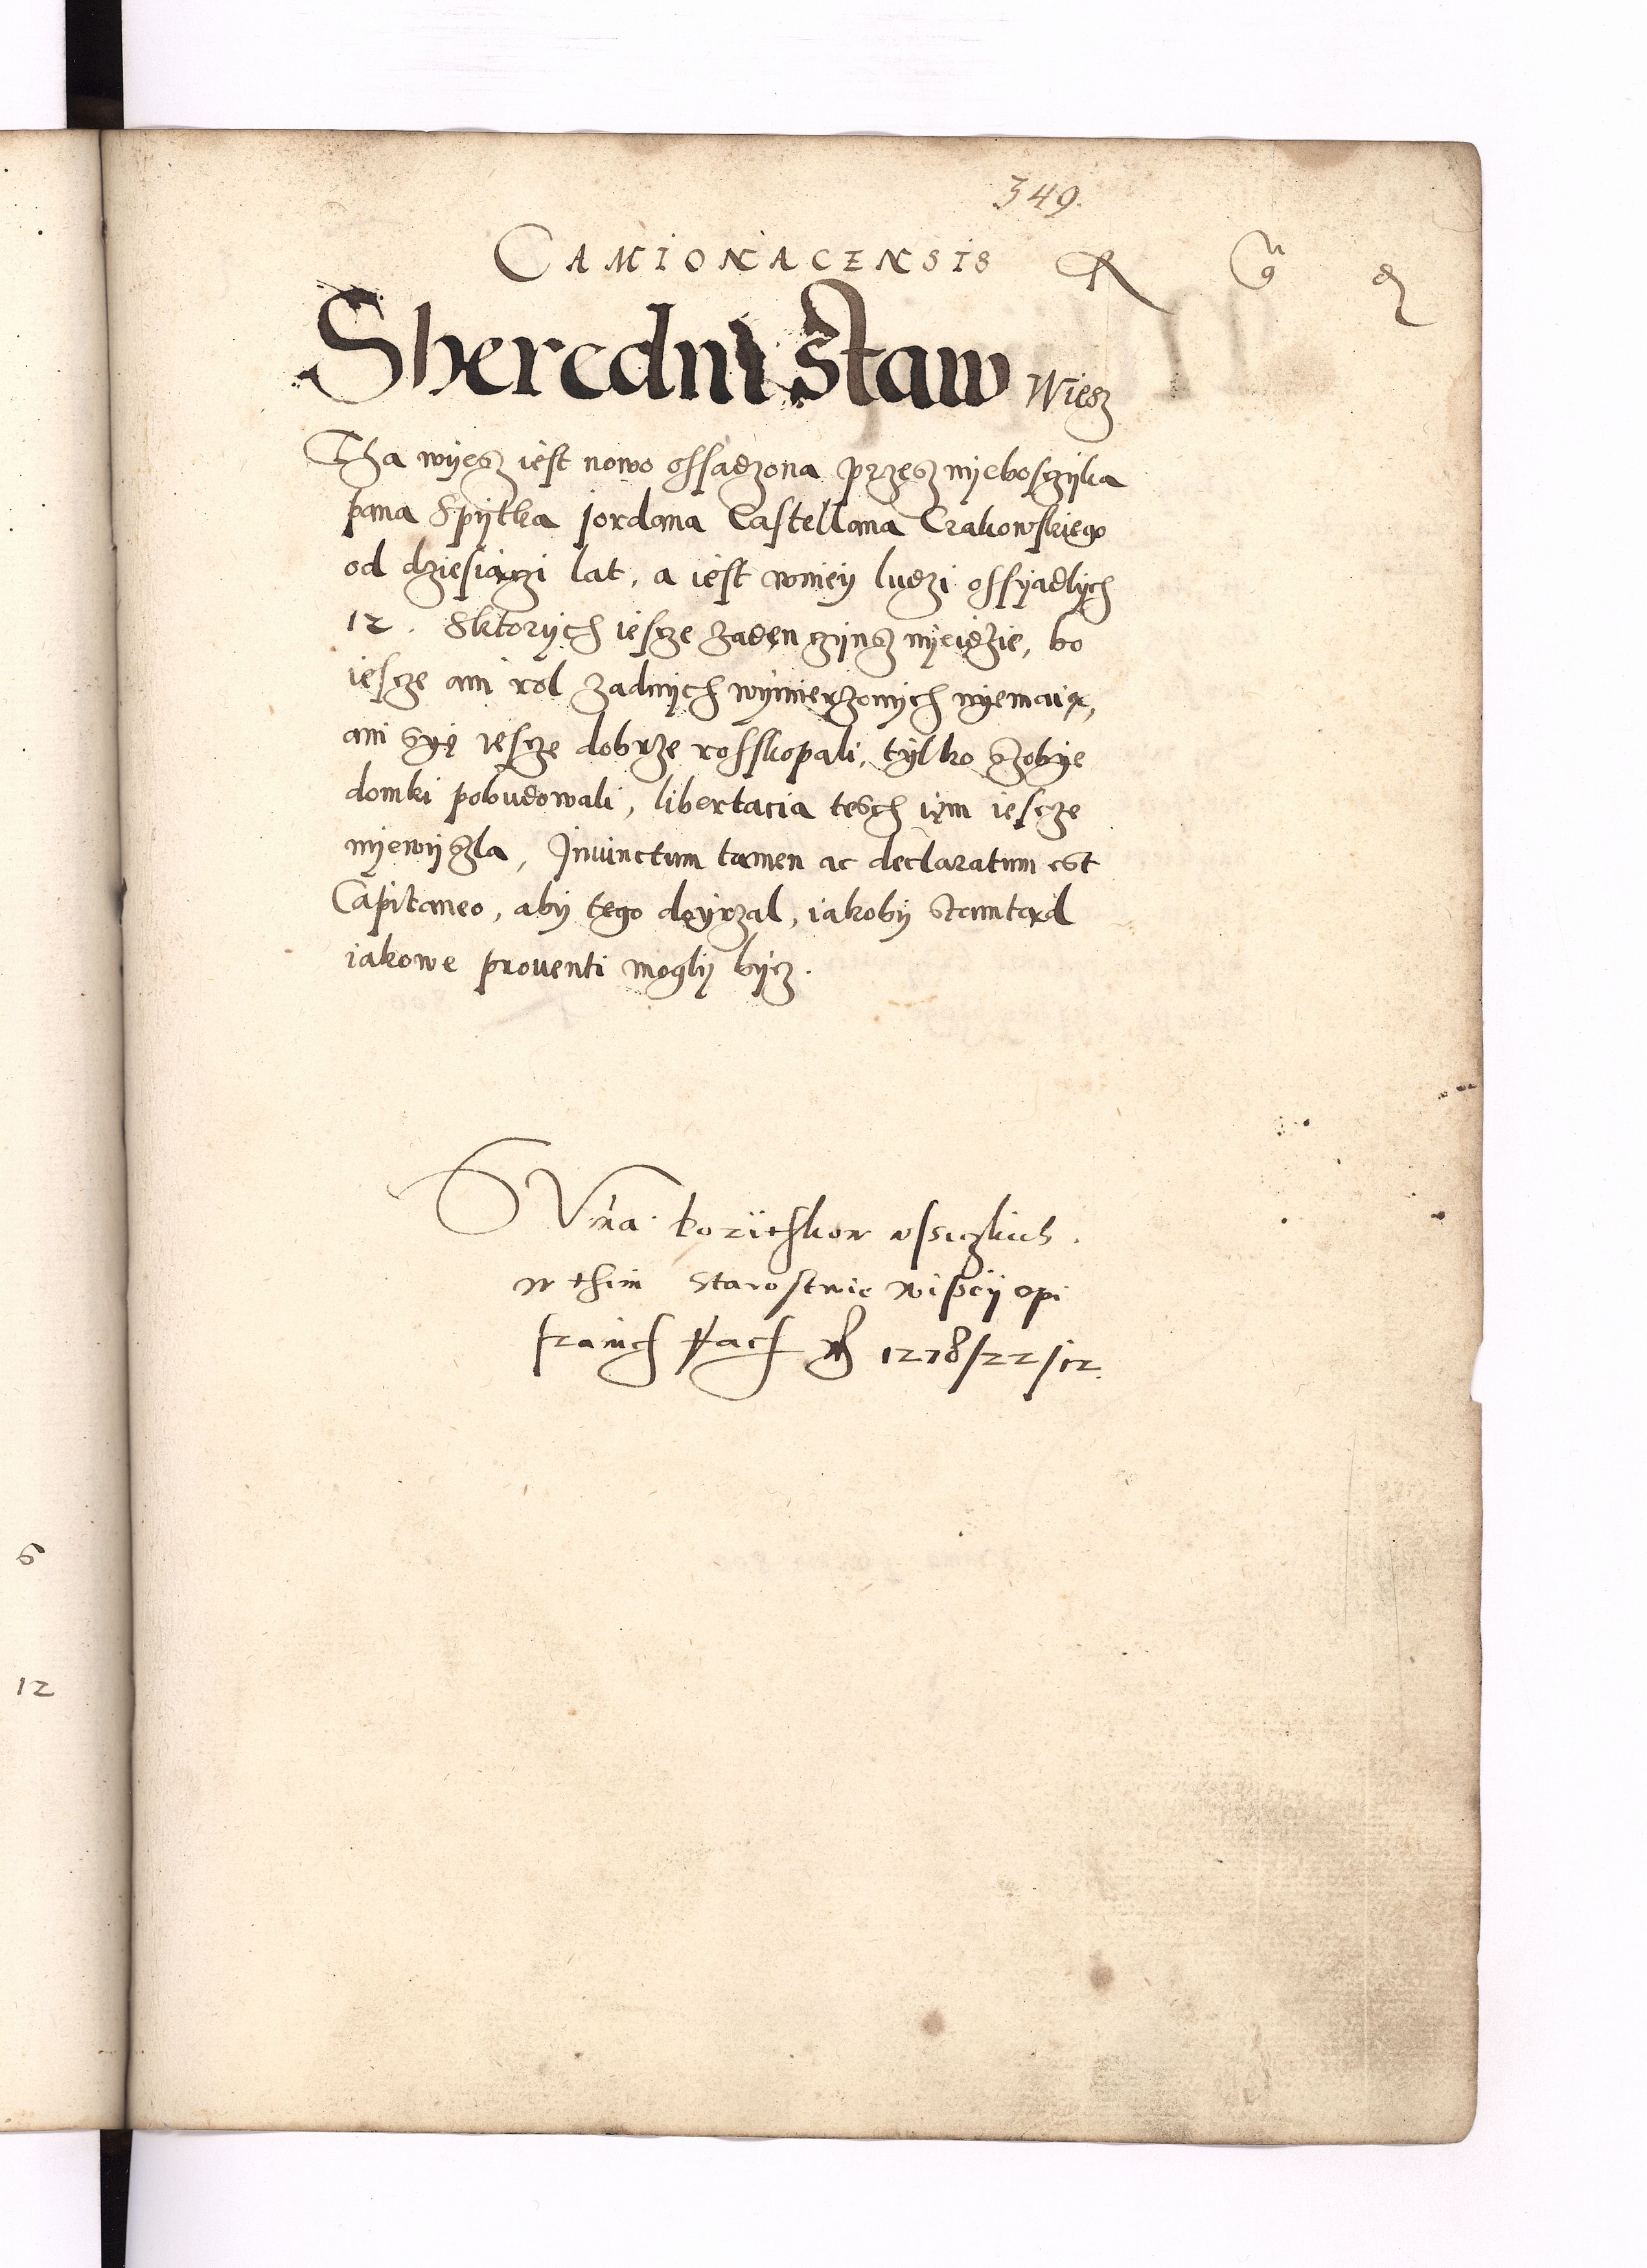 349.
CAMIONACENSIS
Sheredni staw Wiesz
Tha wyesz iest nowo ossadzona przesz nyebosczyka
pana Spytka Jordana Castellana Crakowskiego
od dziesiączi lat, a iest wniey ludzi ossyadlych
12. Sktorych iescze zaden czynsz nyeidzie, bo
iescze ani rol zadnych wymierzonych nyemaią,
ani syę iescze dobrze rosskopali, tylko szobye
domki pobudowali, libertacia tesch iem iescze
nyewyszla, Iniunctum tamen ac declaratum est
Capitaneo, aby tego doyrzal, iakoby stamtąd
iakowe proventi mogly bycz.
w thim starostwie
1278/22/12.
6
12